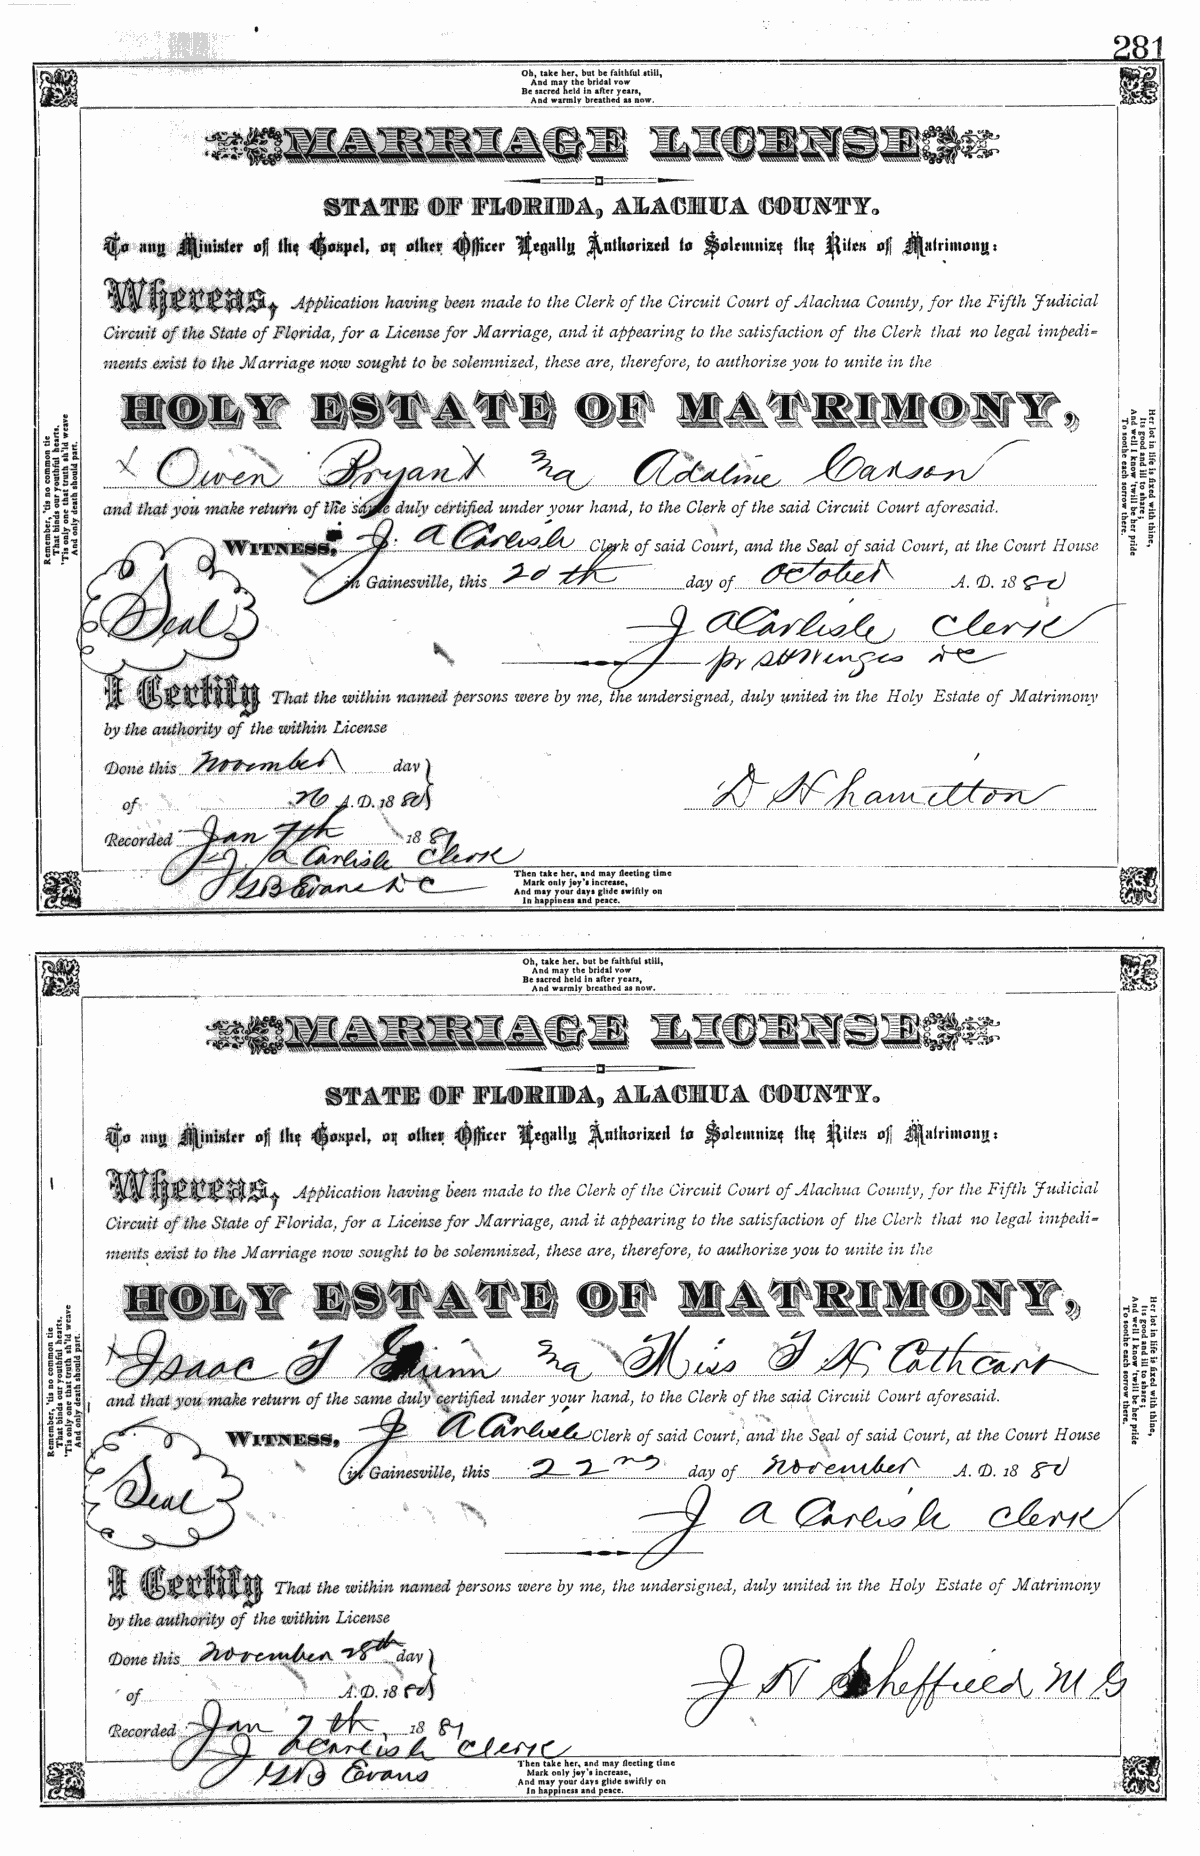 281
Oh, take her, but be faithful still,
And may the bridal vow
Be sacred held in after years,
And warmly breathed as now.
MARRIAGE LICENSE
STATE OF FLORIDA, ALACHUA COUNTY.
To any Minister of the Gospel, or other Officer Legally Authorized to Solemnize the Rites of Matrimony:
Whereas, Application having been made to the Clerk of the Circuit Court of Alachua County, for the Fifth Judicial
Circuit of the State of Florida, for a License for Marriage, and it appearing to the satisfaction of the Clerk that no legal impedi-
ments exist to the Marriage now sought to be solemnized, these are, therefore, to authorize you to unite in the
HOLY ESTATE OF MATRIMONY,
x Owen Bryant Adaline Carson
and that you make return of the same duly certified under your hand, to the Clerk of the said Circuit Court aforesaid.
WITNESS, J. A Carlisle Clerk of said Court, and the Seal of said Court, at the Court House
in Gainesville, this 20th day of October A. D. 1880
Seal
J A Carlisle Clerk
pr DC
I Certify That the within named persons were by me, the undersigned, duly united in the Holy Estate of Matrimony
by the authority of the within License
Done this November day
of 26 A. D. 1880
D H hamilton
Recorded Jan 7th 1881
J A Carlisle Clerk
GB Evans DC
Then take her, and may fleeting time
Mark only joy's increase,
And may your days glide swiftly on
In happiness and peace.
Remember, 'tis no common tie
That binds our youthful hearts,
'Tis only one that truth sh'ld weave
And only death should part.
Her lot in life is fixed with thine,
Its good and ill to share;
And well I know 'twill be her pride
To soothe each sorrow there.
Oh, take her, but be faithful still,
And may the bridal vow
Be sacred held in after years,
And warmly breathed as now.
MARRIAGE LICENSE
STATE OF FLORIDA, ALACHUA COUNTY.
To any Minister of the Gospel, or other Officer Legally Authorized to Solemnize the Rites of Matrimony:
Whereas, Application having been made to the Clerk of the Circuit Court of Alachua County, for the Fifth Judicial
Circuit of the State of Florida, for a License for Marriage, and it appearing to the satisfaction of the Clerk that no legal impedi-
ments exist to the Marriage now sought to be solemnized, these are, therefore, to authorize you to unite in the
HOLY ESTATE OF MATRIMONY,
x Isaac T Miss T H Cathcart
and that you make return of the same duly certified under your hand, to the Clerk of the said Circuit Court aforesaid.
WITNESS, J A Carlisle Clerk of said Court, and the Seal of said Court, at the Court House
in Gainesville, this 22nd day of November A. D. 1880
Seal
J A Carlisle Clerk
I Certify That the within named persons were by me, the undersigned, duly united in the Holy Estate of Matrimony
by the authority of the within License
Done this November 28th day
of A. D. 1880
J H Sheffield, M G
Recorded Jan 7th, 1881
J A Carlisle Clerk
GB Evans
Then take her, and may fleeting time
Mark only joy's increase,
And may your days glide swiftly on
In happiness and peace.
Remember, 'tis no common tie
That binds our youthful hearts,
'Tis only one that truth sh'ld weave
And only death should part.
Her lot in life is fixed with thine,
Its good and ill to share;
And well I know 'twill be her pride
To soothe each sorrow there.